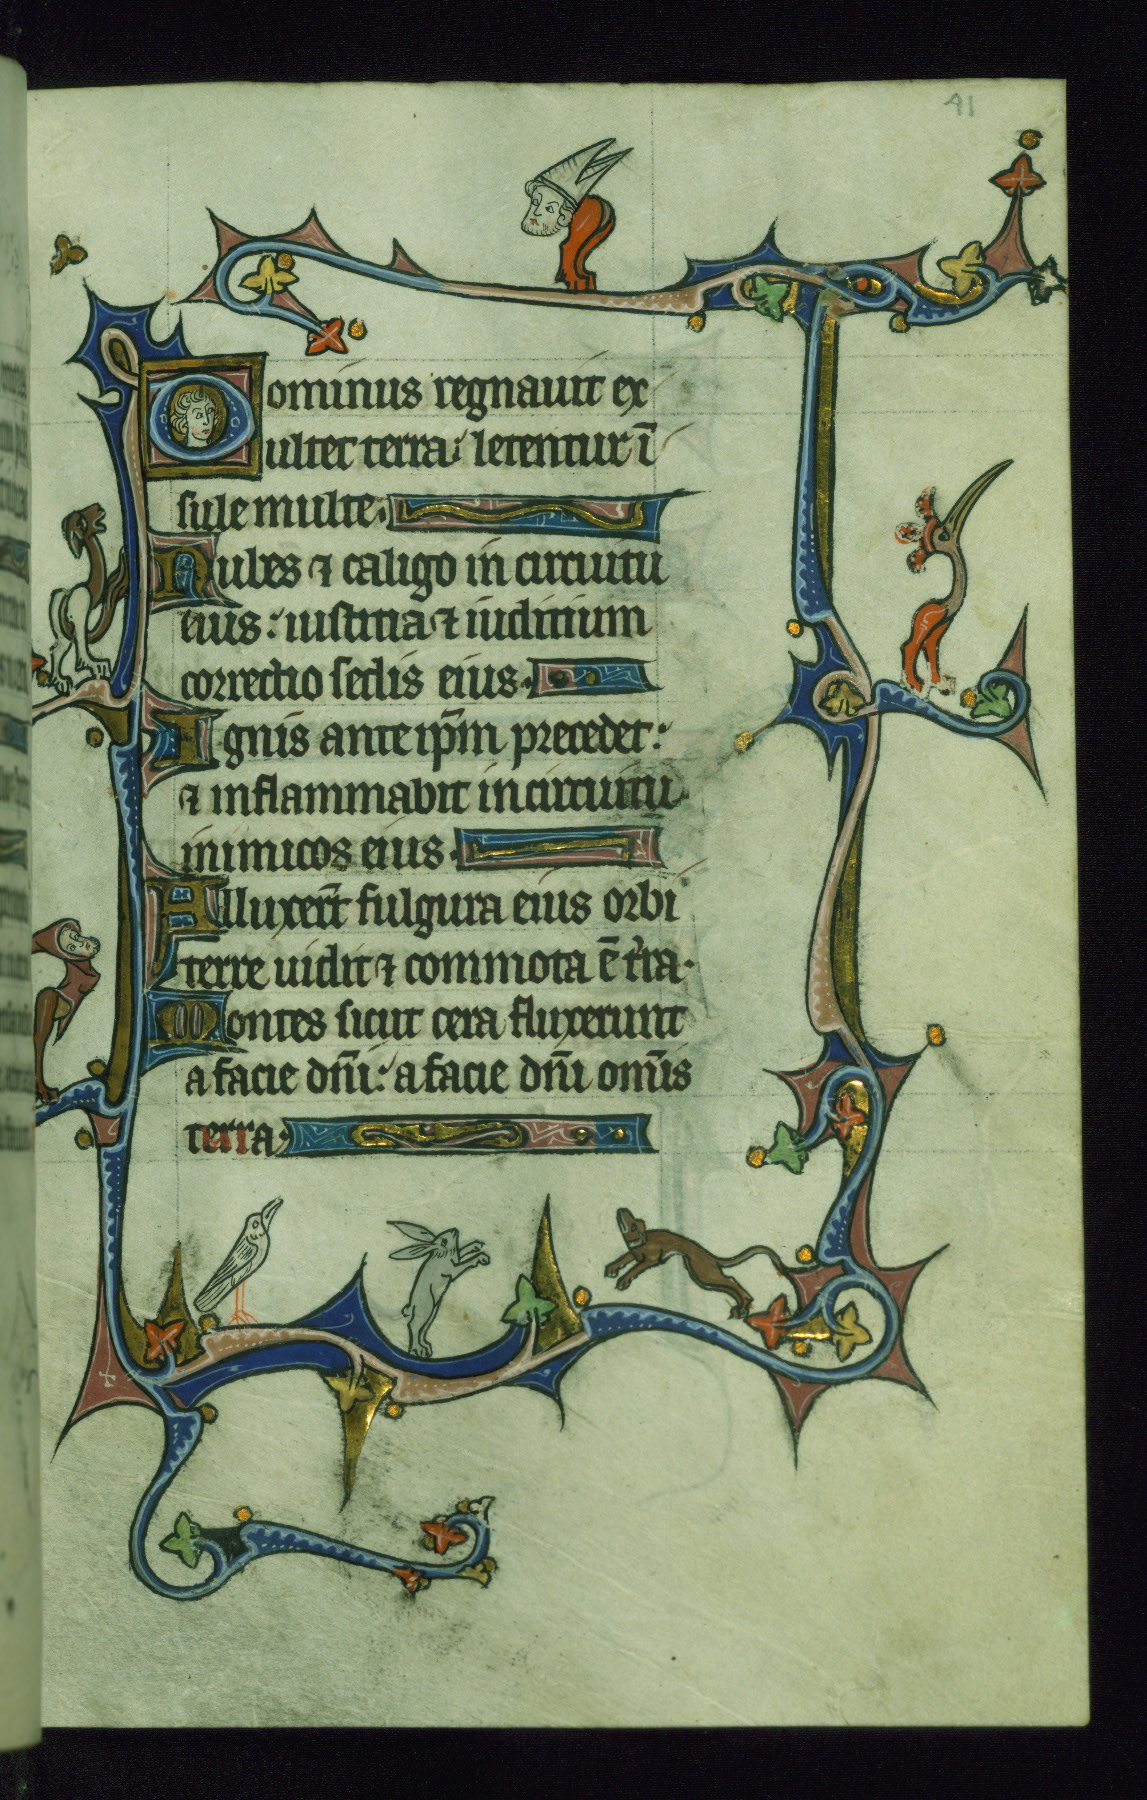 41
Dominus regnauit ex
ultet terra: letentur ī
sule multe.
Nubes ⁊ caligo in circuitu
eius: iustitia ⁊ iudicium
correctio sedis eius.
Ignis ante ip̄m precedet:
⁊ inflammabit in circuitu
inimicos eius.
Alluxer̄t fulgura eius orbi
terre uidit ⁊ commota ē t̉ra.
Montes sicut cera fluxerunt
a facie dn̄i: a facie dn̄i om̄is
terra.